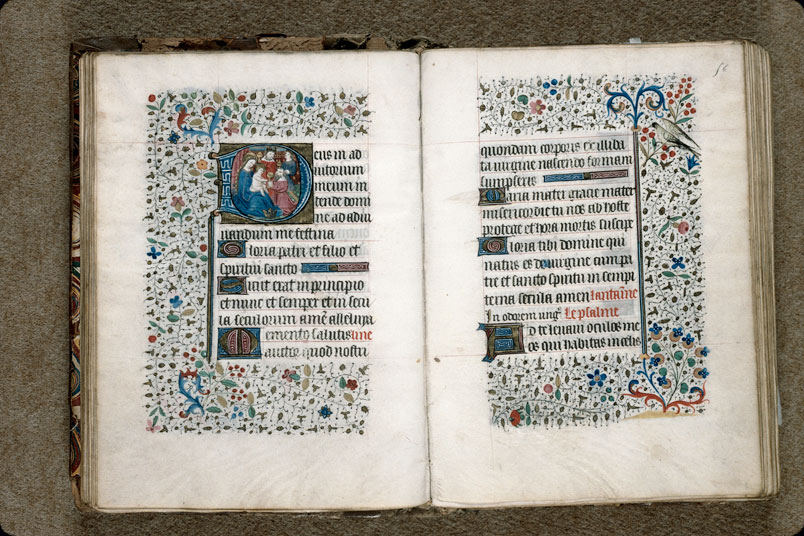 eus in ad
iutorium
meum in
tende domi
ne ad adiu
uandum me festina
Gloria patri et filio et
spiritui sancto
Sicut erat in principio
et nunc et semper et in secu
la seculorum amē alleluya
Memento salutis ꝯne
auctor quod nostri
58
quondam corporis ex illiba
ta uirgine nascendo formam
sumpseris
Maria mater gracie mater
misericordie tu nos ab hoste
protege et hora mortis suscipe
Gloria tibi domine qui
natus es de uirgine cum pa
tre et sancto spiritu in sempi
terna secula amen antāne
In odorem ung Le psalme
Ad te leuaui oculos me
os qui habitas in celis